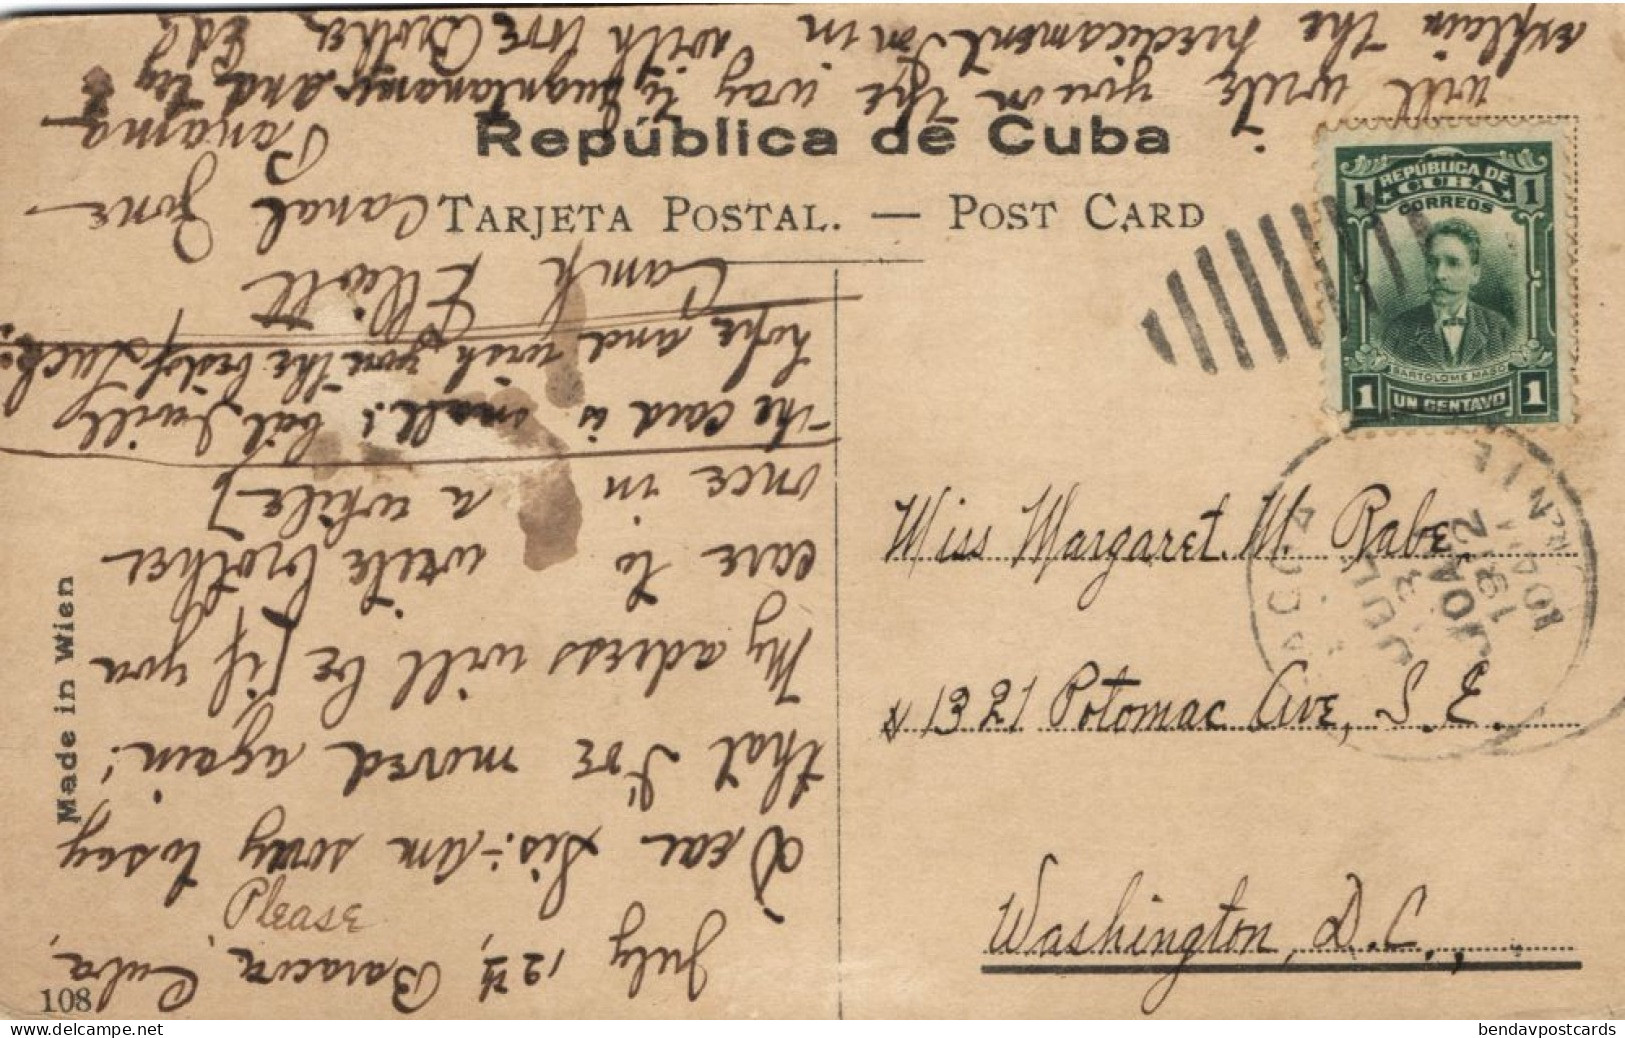 República de Cuba
TARJETA POSTAL. — POST CARD
REPÚBLICA DE
CUBA
CORREOS
1 1
BARTOLOME MASO
1 UN CENTAVO 1
JUL
13
10 AM
1912
Miss Margaret. M. Rabe,
1321 Potomac Ave, S. E.
Washington, D.C.,
July 12th, Baracoa, Cuba,
Please
Dear Sis:- Am sorry to say
that I've moved again!
My adress will be [if you
care to write brother
once in a while]
Camp Elliott
Canal Zone
Panama
The card is small! but I will
hope and wish you the best of Luck!
will write you on the way to Guantanamo and try
explain the predicament I'm in with love Brother Ed
Made in Wien
108
bendavpostcards